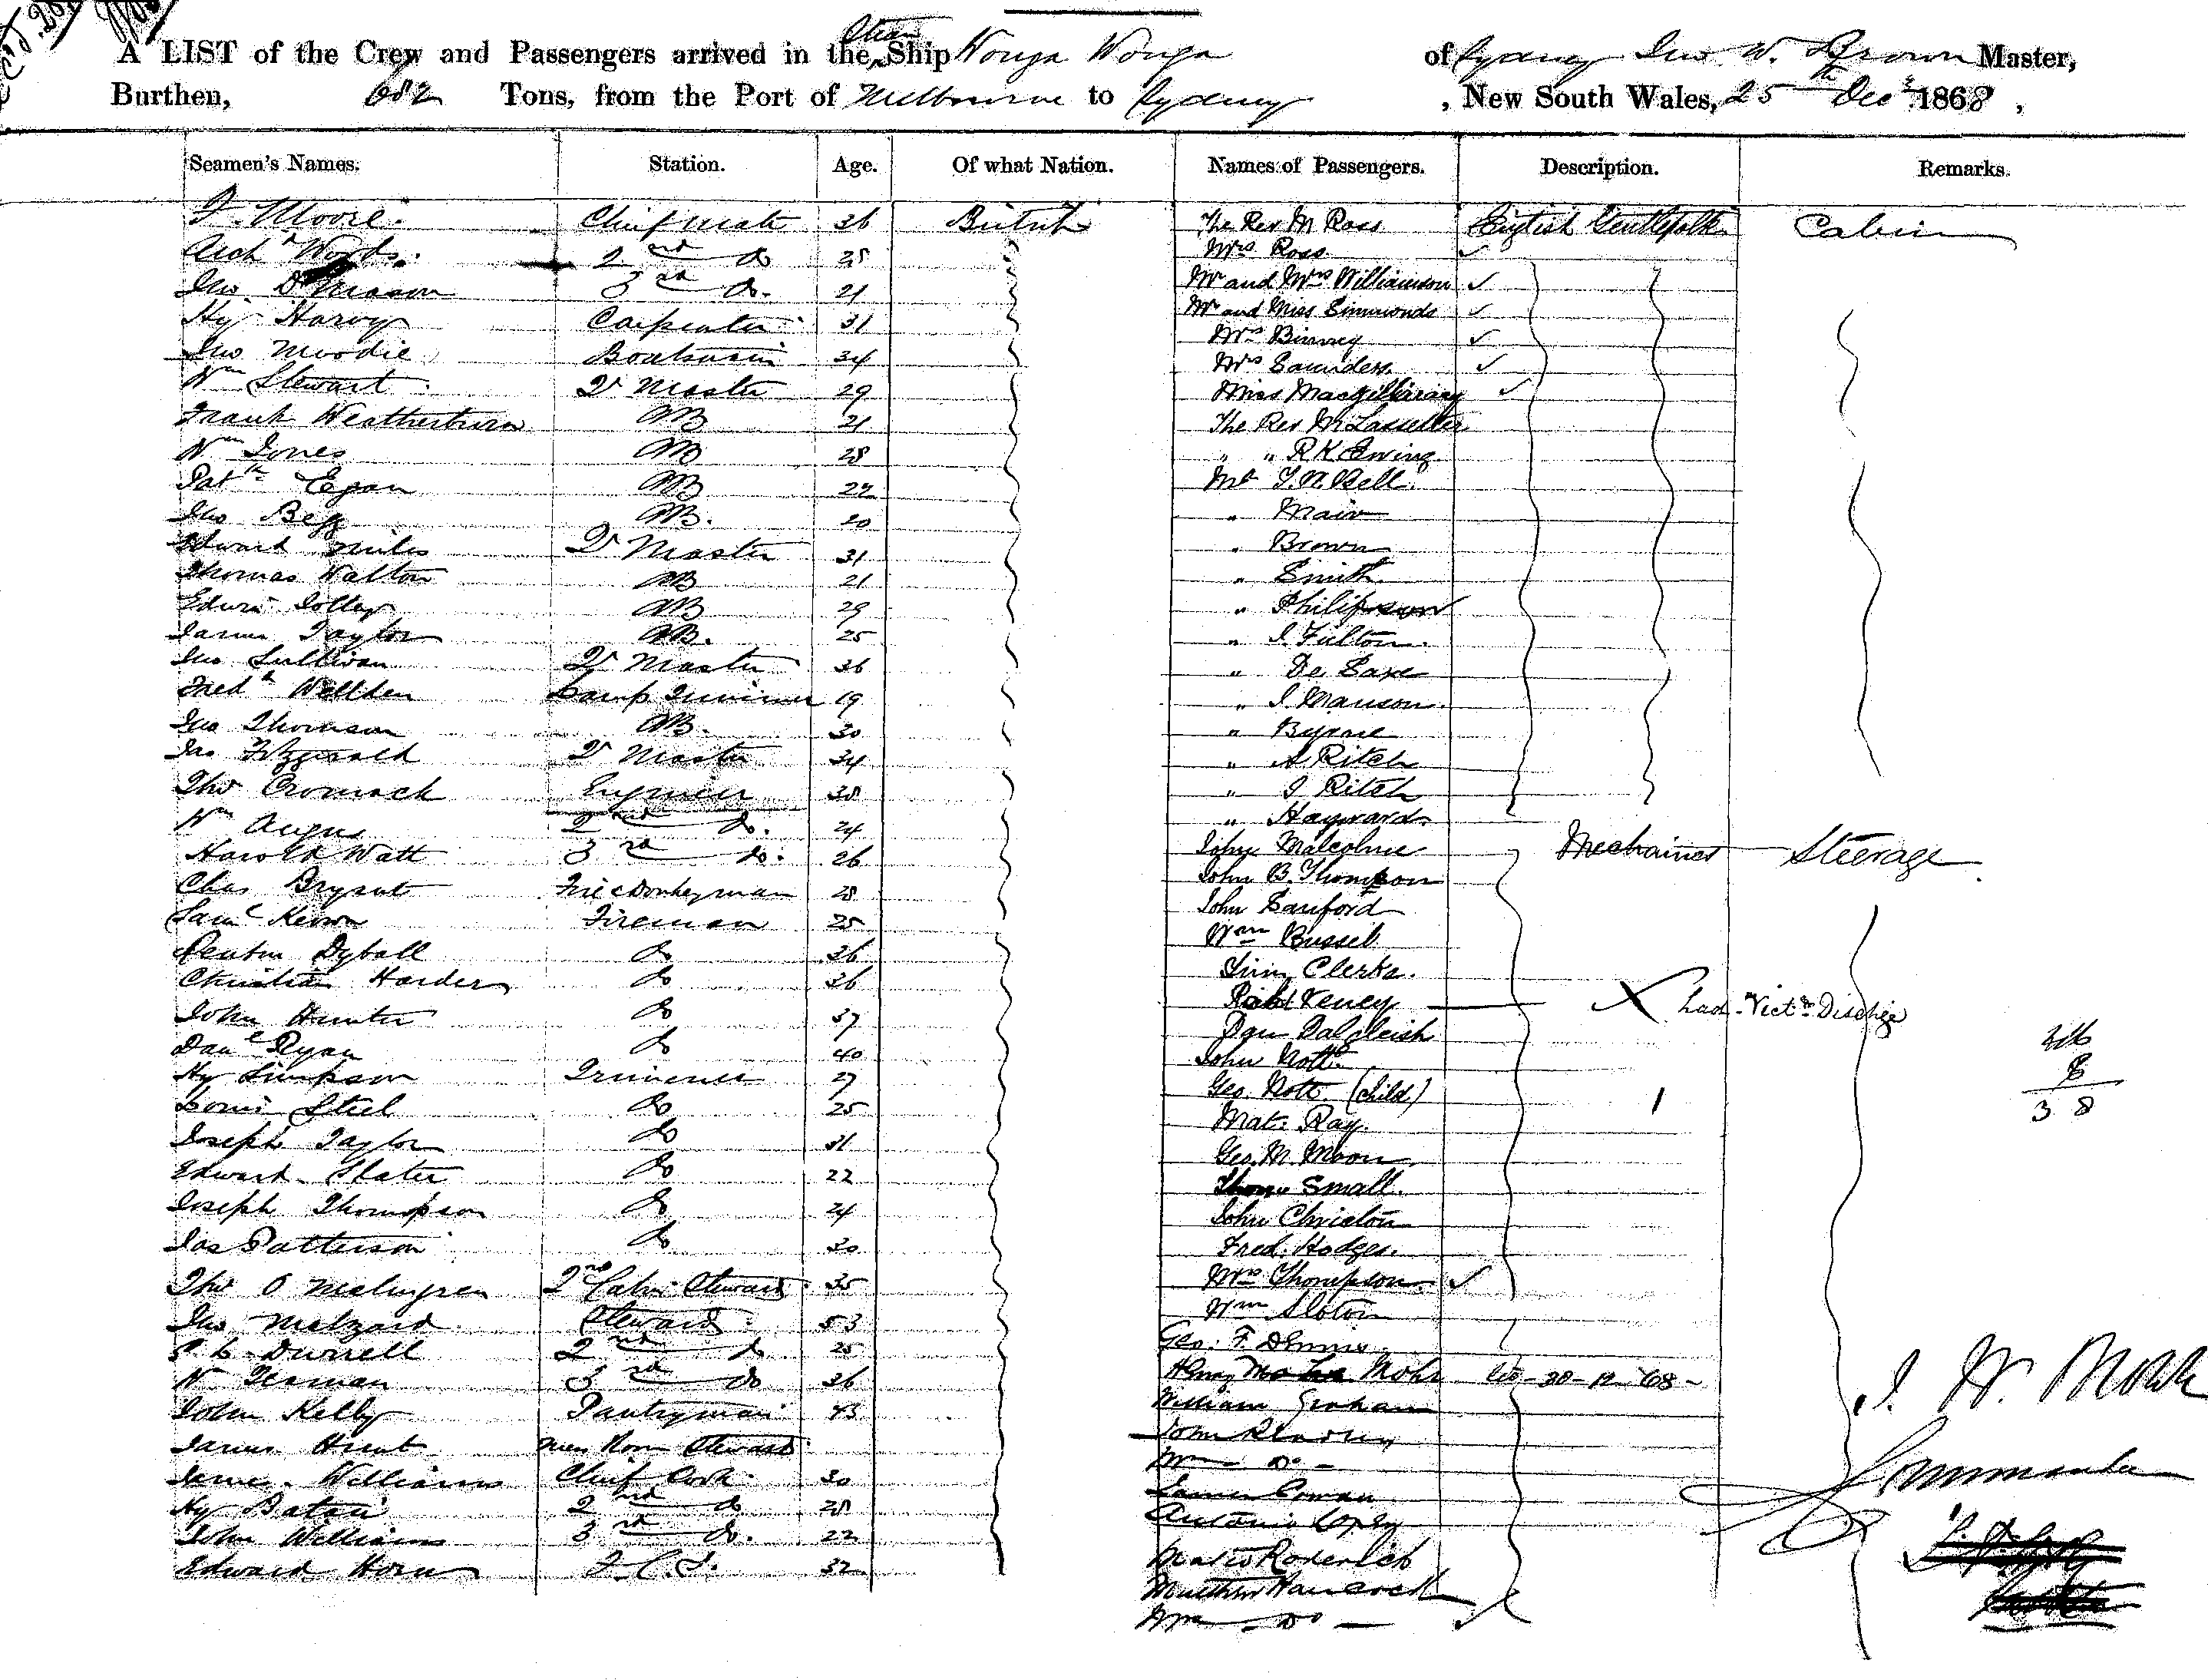 A LIST of the Crew and Passengers arrived in the Steam Ship Wonga Wonga of Sydney Jno. W. Brown Master,
Burthen, 682 Tons, from the Port of Melbourne to Sydney, New South Wales, 25th Decr 1868,
Seamen's Names. Station. Age. Of what Nation. Names of Passengers. Description. Remarks.
F. Moore Chief Mate 36 British The Rev Mr Ross English Gentlefolk Cabin
Archd Woods 2nd do 25 Mrs Ross
Jno. D Mason 3rd do. 21 Mr and Mrs Williamson
Hy Harvy Carpenter 31 Mr and Miss Simmonds
Jno Moodie Boatswain 34 Mrs Binney
Wm Stewart Qr Master 29 Mrs Saunders
Frank Weatherburn AB 21 Miss MacGillivray
Wm Jones AB 28 The Rev Mr Lasseter
Patk Egan AB 24 " " R K Ewing
Jno Begg AB. 20 Mr T. A. Bell
Edward Miles Qr Master 31 " Mair
Thomas Walton AB 21 " Brown
Edwin Jolley AB 29 " Smith
James Taylor AB. 25 " Philipson
Jno Sullivan Qr Master 36 " J. Fulton
Fredk Wellden Lamp Trimmer 19 " De Saxe
Jno Thomson AB. 30 " J. Manson
Jas Fitzgerald Qr Master 34 " Byrne
Thos Cromack Engineer 38 " A Ritch
Wm Angus 2nd do. 24 " J Ritch
Harold Watt 3rd do. 26 " Hayward
Chas Bryant Fire & Donkeyman 28 John Malcolme Mechanics Steerage
Saml Keown Fireman 25 John B. Thompson
Renton Dyball do 36 John Sanford
Christian Harder do 36 Wm Bussel
John Hunter do 37 Jim Clerke.
Danl Ryan do 40 Richd Veney X had Vict. Dischge
Hy Simpson Trimmer 27 Dan Dalgleish
Louis Steel do 25 John Nott
Joseph Taylor do 31 Geo. Nott (child) 1
Edward Slater do 22 Mat. Ray
Joseph Thompson do 24 Geo. M. Moon
Jas Patterson do 30 Small.
Thos O Malmgren 2nd Cabin Steward 35 John Christon
Jno Malzard Steward 53 Fred. Hodges.
Durrell 2nd do 25 Mrs Thompson
W Fearman 3rd do 36 Wm Sloton
John Kelly Pantryman 43 Geo. F. Dennis
James Hunt Mess Room Steward Henry Mohr 30-12-'68
Williams Chief Cook 30 William Graham
Hy Baten 2nd do 28 John
John Williams 3rd do. 22 Mrs Do
Edward Horn F. C. S. 32 James Cowan
Antonio Lopez
Matio Roderick
Matthew Hancock
Wm Do
38
J. W. Brown
Commander